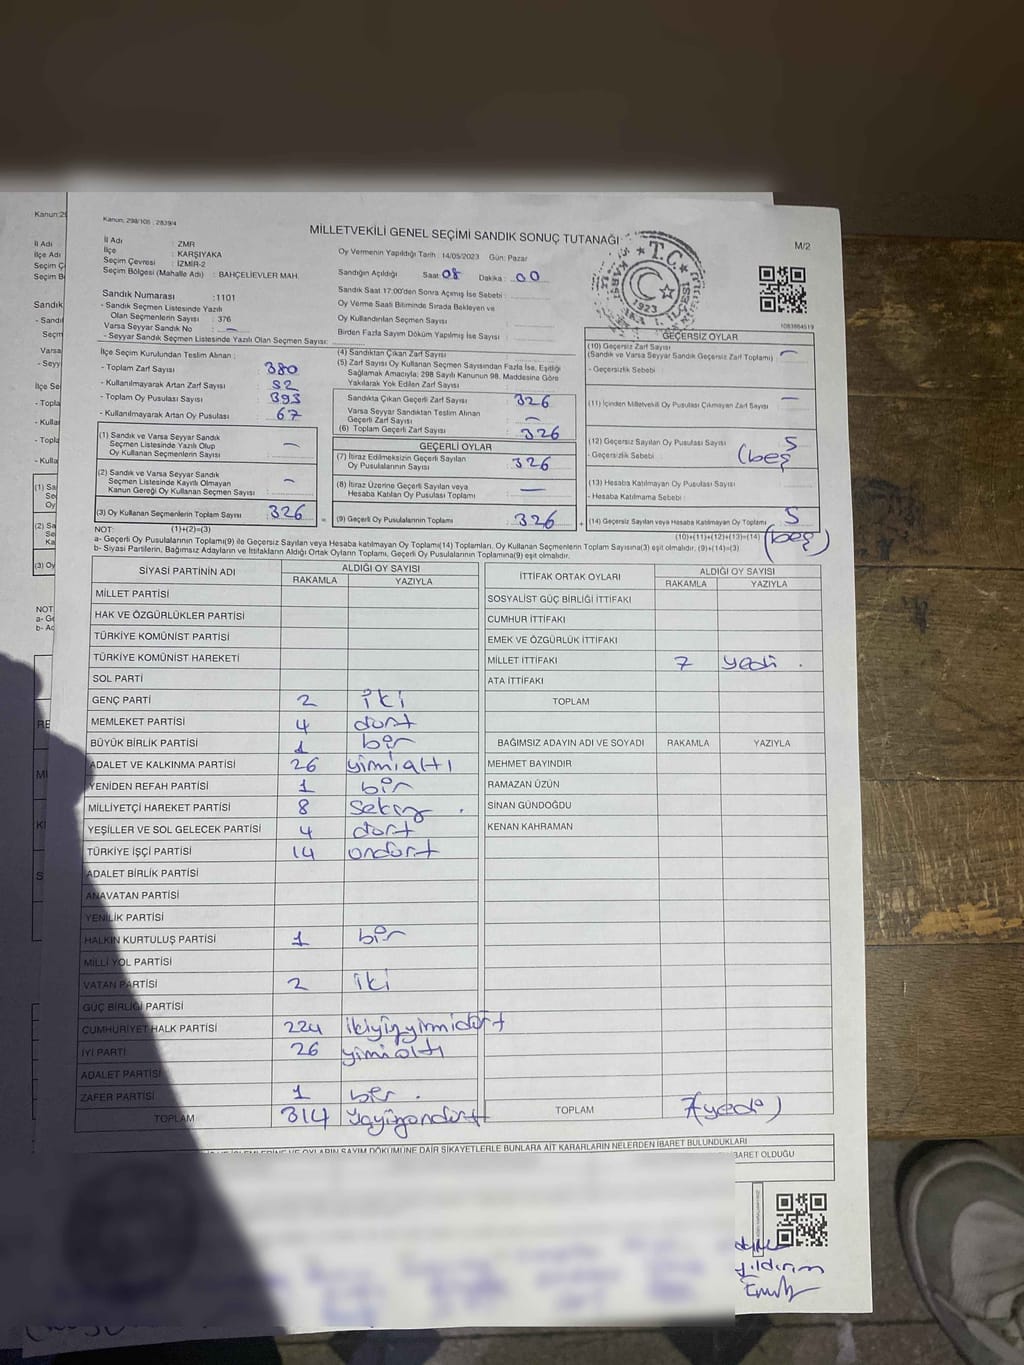 Kanun: 298/106 ; 2839/4
MİLLETVEKİLİ GENEL SEÇİMİ SANDIK SONUÇ TUTANAĞI
M/2
İl Adı : ZMR
İlçe : KARŞIYAKA
Seçim Çevresi : İZMİR-2
Seçim Bölgesi (Mahalle Adı) : BAHÇELİEVLER MAH.
Oy Vermenin Yapıldığı Tarih 14/05/2023 Gün: Pazar
Sandığın Açıldığı Saat 08 Dakika : 00
T.C.
1923
1083864519
Sandık Numarası :1101
- Sandık Seçim Listesinde Yazılı
Olan Seçmenlerin Sayısı : 376
Varsa Seyyar Sandık No : —
- Seyyar Sandık Seçmen Listesinde Yazılı Olan Seçmen Sayısı:
Sandık Saat 17:00'den Sonra Açılmış İse Sebebi :
Oy Verme Saati Bitiminde Sırada Bekleyen ve
Oy Kullandırılan Seçmen Sayısı :
Birden Fazla Sayım Döküm Yapılmış İse Sayısı :
İlçe Seçim Kurulundan Teslim Alınan :
- Toplam Zarf Sayısı : 380
- Kullanılmayarak Artan Zarf Sayısı :
- Toplam Oy Pusulası Sayısı : 393
- Kullanılmayarak Artan Oy Pusulası : 67
(1) Sandık ve Varsa Seyyar Sandık
Seçmen Listesinde Yazılı Olup
Oy Kullanan Seçmenlerin Sayısı —
(2) Sandık ve Varsa Seyyar Sandık
Seçmen Listesinde Kayıtlı Olmayan
Kanun Gereği Oy Kullanan Seçmen Sayısı —
(3) Oy Kullanan Seçmenlerin Toplam Sayısı 326
(4) Sandıktan Çıkan Zarf Sayısı :
(5) Zarf Sayısı Oy Kullanan Seçmen Sayısından Fazla İse, Eşitliği
Sağlamak Amacıyla; 298 Sayılı Kanunun 98. Maddesine Göre
Yakılarak Yok Edilen Zarf Sayısı :
Sandıkta Çıkan Geçerli Zarf Sayısı : 326
Varsa Seyyar Sandıktan Teslim Alınan
Geçerli Zarf Sayısı : —
(6) Toplam Geçerli Zarf Sayısı : 326
GEÇERLİ OYLAR
(7) İtiraz Edilmeksizin Geçerli Sayılan
Oy Pusulalarının Sayısı : 326
(8) İtiraz Üzerine Geçerli Sayılan veya
Hesaba Katılan Oy Pusulası Toplamı : —
= (9) Geçerli Oy Pusulalarının Toplamı : 326
GEÇERSİZ OYLAR
(10) Geçersiz Zarf Sayısı :
(Sandık ve Varsa Seyyar Sandık Geçersiz Zarf Toplamı) —
- Geçersizlik Sebebi :
(11) İçinden Milletvekili Oy Pusulası Çıkmayan Zarf Sayısı : —
(12) Geçersiz Sayılan Oy Pusulası Sayısı : 5
- Geçersizlik Sebebi : (beş
(13) Hesaba Katılmayan Oy Pusulası Sayısı :
- Hesaba Katılmama Sebebi :
+ (14) Geçersiz Sayılan veya Hesaba Katılmayan Oy Toplamı : 5
(beş)
NOT: (1)+(2)=(3) (10)+(11)+(12)+(13)=(14)
a- Geçerli Oy Pusulalarının Toplamı(9) ile Geçersiz Sayılan veya Hesaba katılmayan Oy Toplamı(14) Toplamları, Oy Kullanan Seçmenlerin Toplam Sayısına(3) eşit olmalıdır. (9)+(14)=(3)
b- Siyasi Partilerin, Bağımsız Adayların ve İttifakların Aldığı Ortak Oyların Toplamı, Geçerli Oy Pusulalarının Toplamına(9) eşit olmalıdır.
SİYASİ PARTİNİN ADI ALDIĞI OY SAYISI
RAKAMLA YAZIYLA
MİLLET PARTİSİ
HAK VE ÖZGÜRLÜKLER PARTİSİ
TÜRKİYE KOMÜNİST PARTİSİ
TÜRKİYE KOMÜNİST HAREKETİ
SOL PARTİ
GENÇ PARTİ 2 iki
MEMLEKET PARTİSİ 4 dört
BÜYÜK BİRLİK PARTİSİ 1 bir
ADALET VE KALKINMA PARTİSİ 26 yimialtı
YENİDEN REFAH PARTİSİ 1 bir
MİLLİYETÇİ HAREKET PARTİSİ 8 sekiz .
YEŞİLLER VE SOL GELECEK PARTİSİ 4 dört
TÜRKİYE İŞÇİ PARTİSİ 14 ondört
ADALET BİRLİK PARTİSİ
ANAVATAN PARTİSİ
YENİLİK PARTİSİ
HALKIN KURTULUŞ PARTİSİ 1 bir
MİLLİ YOL PARTİSİ
VATAN PARTİSİ 2 iki
GÜÇ BİRLİĞİ PARTİSİ
CUMHURİYET HALK PARTİSİ 224 ikiyüzyirmidört
İYİ PARTİ 26 yimialtı
ADALET PARTİSİ
ZAFER PARTİSİ 1 bir .
TOPLAM 314 üçyüzondört
İTTİFAK ORTAK OYLARI ALDIĞI OY SAYISI
RAKAMLA YAZIYLA
SOSYALİST GÜÇ BİRLİĞİ İTTİFAKI
CUMHUR İTTİFAKI
EMEK VE ÖZGÜRLÜK İTTİFAKI
MİLLET İTTİFAKI 7 yedi .
ATA İTTİFAKI
TOPLAM
BAĞIMSIZ ADAYIN ADI VE SOYADI RAKAMLA YAZIYLA
MEHMET BAYINDIR
RAMAZAN ÜZÜN
SİNAN GÜNDOĞDU
KENAN KAHRAMAN
TOPLAM 7 (yedi)
OYLARIN SAYIM DÖKÜMÜNE DAİR ŞİKAYETLERLE BUNLARA AİT KARARLARIN NELERDEN İBARET BULUNDUKLARI
BARET OLDUĞU
yıldırım